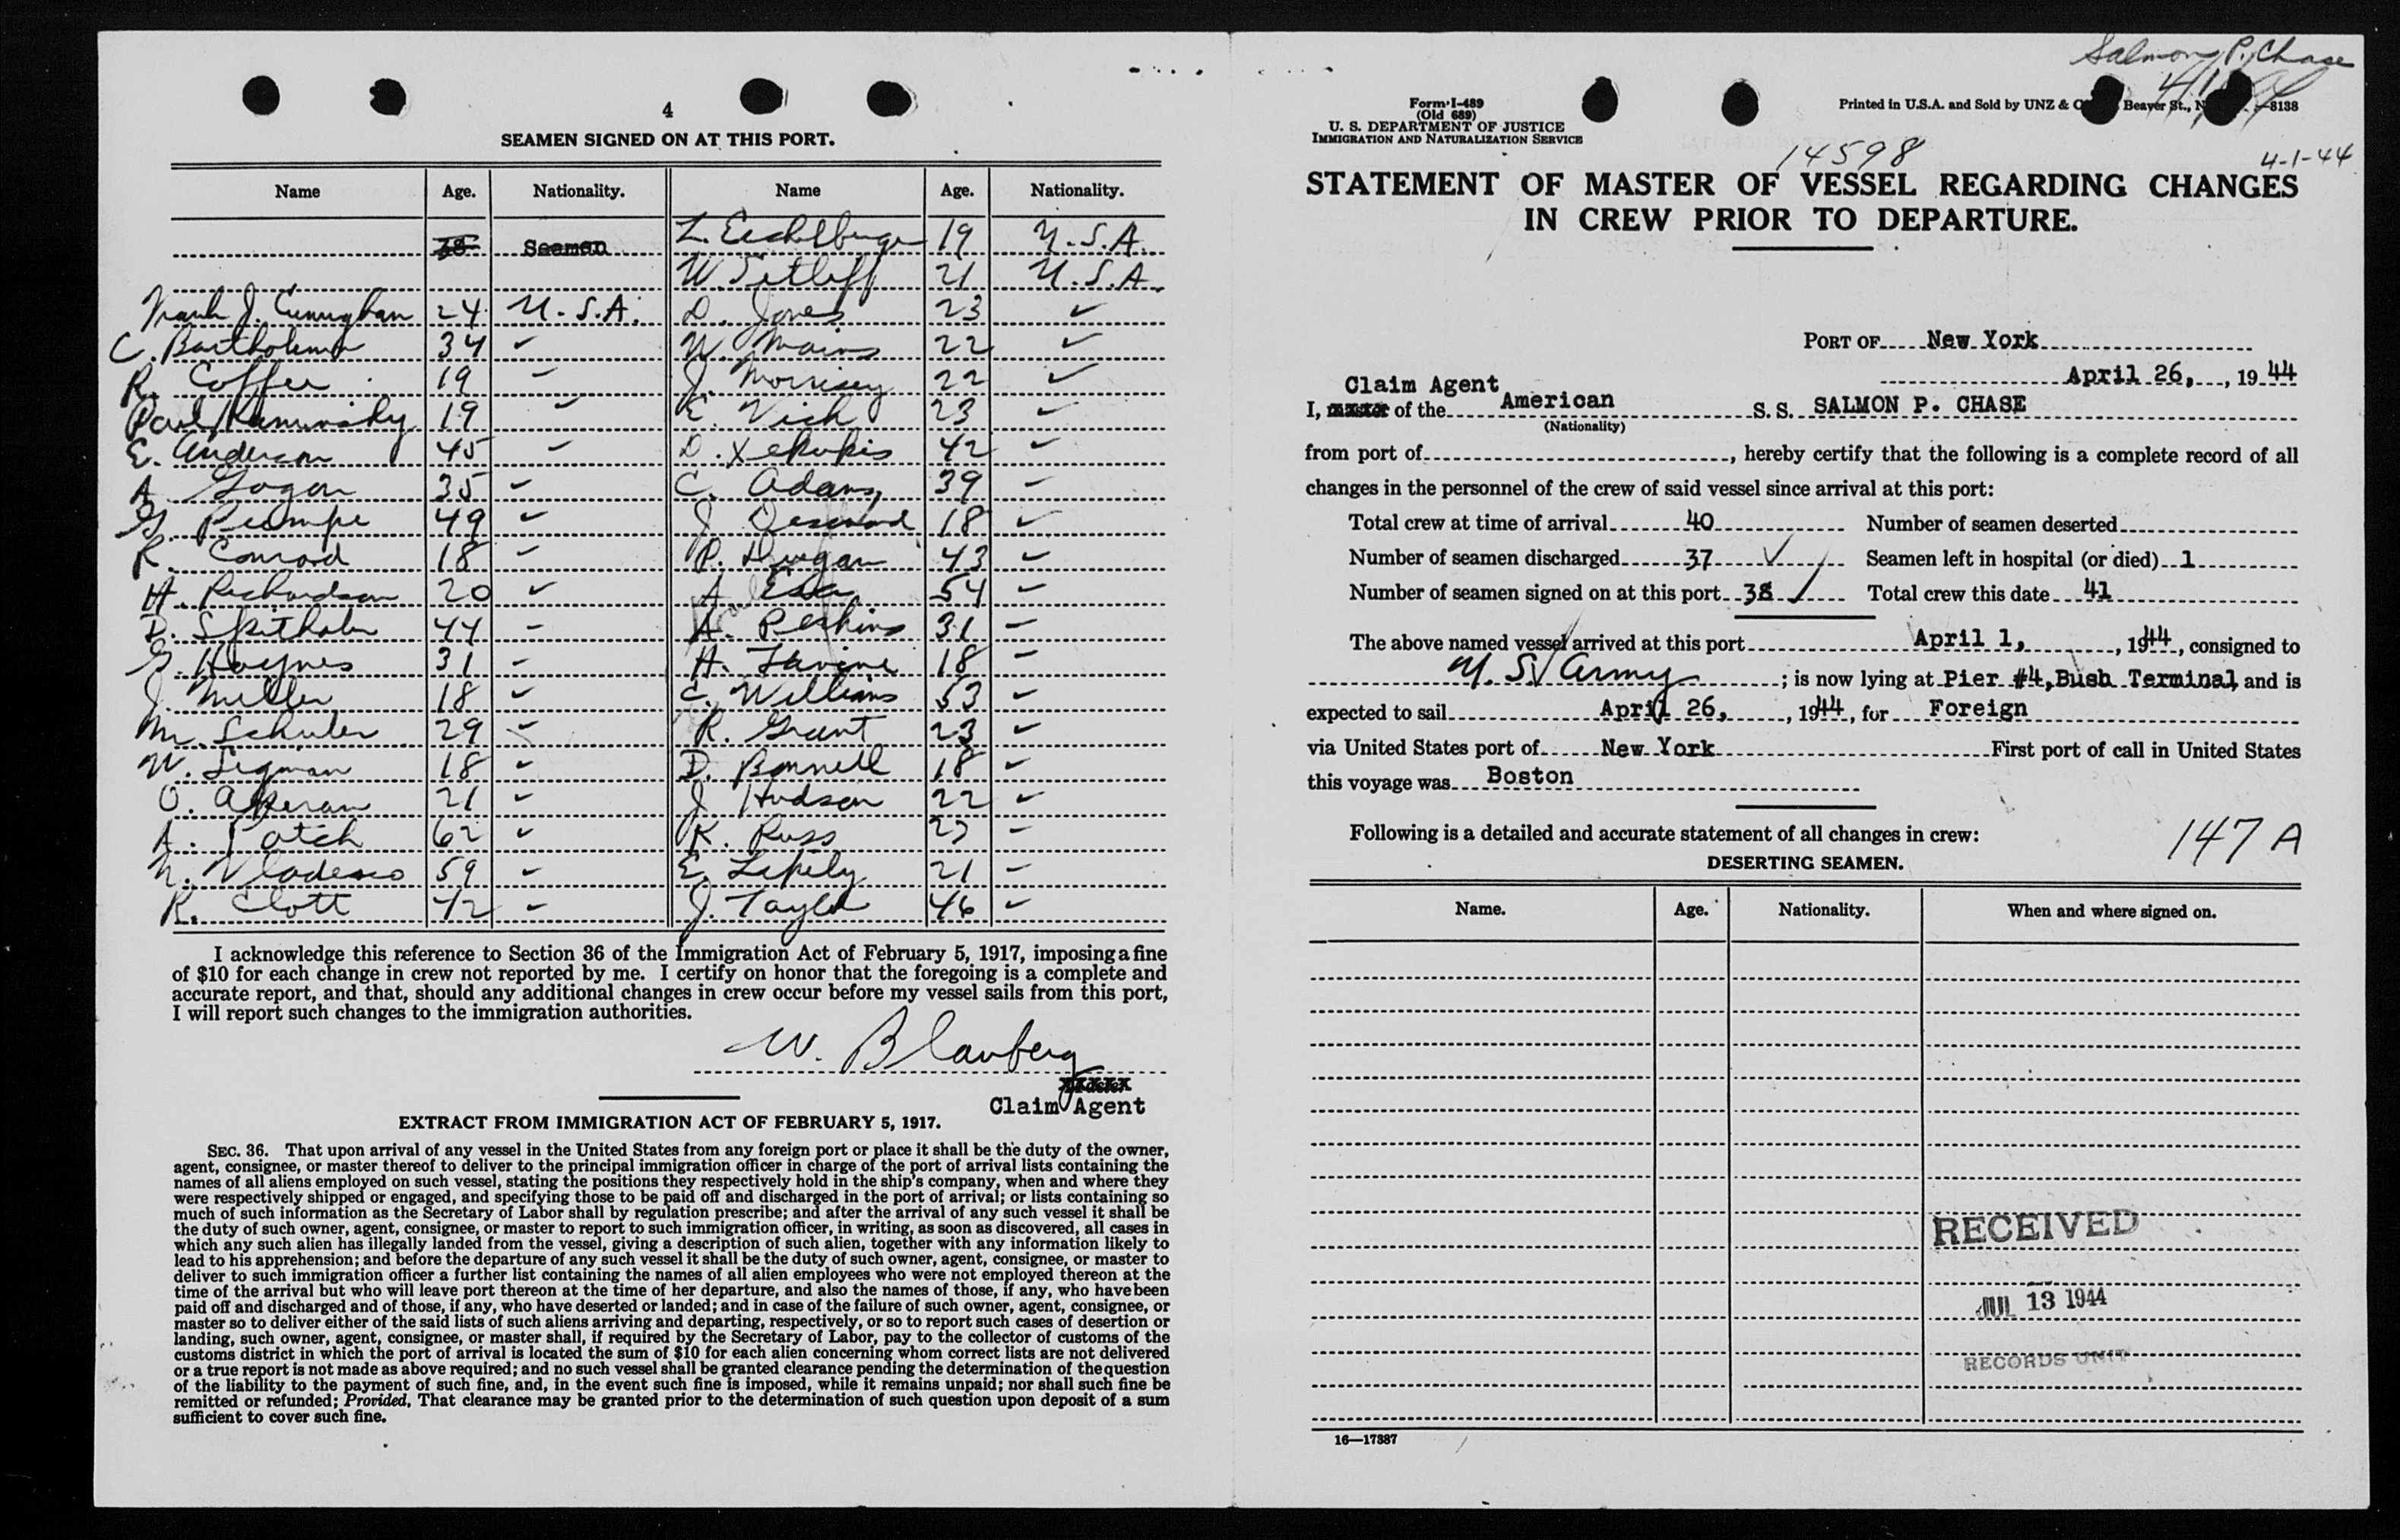 4
SEAMEN SIGNED ON AT THIS PORT.
Name Age. Nationality. Name Age. Nationality.
38 Seamen L. Eichelberger 19 U.S.A.
W. Setliff 21 U.S.A.
Frank J. Cunnighan 24 U.S.A. D. Jones 23 ✓
C. Bartholemew 34 ✓ W. Mains 22 ✓
R. Coffee 19 - J. Morrisey 22 ✓
Paul Kaminsky 19 ✓ E. Vich 23 ✓
E. Anderson 45 - D. Xekukis 42 ✓
A. Gogan 35 ✓ C. Adams 39 -
G. Plumpe 49 ✓ J. 18 ✓
R. Conrad 18 - P. Dugan 43 ✓
H. Richardson 20 ✓ A. 54 -
D. Spithaler 44 - A. Perkins 31 -
G. Haynes 31 - H. Levine 18 -
J. Miller 18 ✓ C. Williams 53 -
M. Schuler 29 - R. Grant 23 ✓
W. Sigman 18 ✓ D. Bonnell 18 ✓
O. 21 ✓ J. Hudson 22 ✓
A. Patch 62 ✓ K. Russ 23 -
N. Vladesco 59 - E. Lipely 21 -
R. Clott 42 - J. Taylor 46 ✓
I acknowledge this reference to Section 36 of the Immigration Act of February 5, 1917, imposing a fine
of $10 for each change in crew not reported by me. I certify on honor that the foregoing is a complete and
accurate report, and that, should any additional changes in crew occur before my vessel sails from this port,
I will report such changes to the immigration authorities.
W. Blauberg
Claim Agent
EXTRACT FROM IMMIGRATION ACT OF FEBRUARY 5, 1917.
SEC. 36. That upon arrival of any vessel in the United States from any foreign port or place it shall be the duty of the owner,
agent, consignee, or master thereof to deliver to the principal immigration officer in charge of the port of arrival lists containing the
names of all aliens employed on such vessel, stating the positions they respectively hold in the ship's company, when and where they
were respectively shipped or engaged, and specifying those to be paid off and discharged in the port of arrival; or lists containing so
much of such information as the Secretary of Labor shall by regulation prescribe; and after the arrival of any such vessel it shall be
the duty of such owner, agent, consignee, or master to report to such immigration officer, in writing, as soon as discovered, all cases in
which any such alien has illegally landed from the vessel, giving a description of such alien, together with any information likely to
lead to his apprehension; and before the departure of any such vessel it shall be the duty of such owner, agent, consignee, or master to
deliver to such immigration officer a further list containing the names of all alien employees who were not employed thereon at the
time of the arrival but who will leave port thereon at the time of her departure, and also the names of those, if any, who have been
paid off and discharged and of those, if any, who have deserted or landed; and in case of the failure of such owner, agent, consignee, or
master so to deliver either of the said lists of such aliens arriving and departing, respectively, or so to report such cases of desertion or
landing, such owner, agent, consignee, or master shall, if required by the Secretary of Labor, pay to the collector of customs of the
customs district in which the port of arrival is located the sum of $10 for each alien concerning whom correct lists are not delivered
or a true report is not made as above required; and no such vessel shall be granted clearance pending the determination of the question
of the liability to the payment of such fine, and, in the event such fine is imposed, while it remains unpaid; nor shall such fine be
remitted or refunded; Provided, That clearance may be granted prior to the determination of such question upon deposit of a sum
sufficient to cover such fine.
Salmon P. Chase
Form I-489
(Old 689)
U. S. DEPARTMENT OF JUSTICE
IMMIGRATION AND NATURALIZATION SERVICE
Printed in U.S.A. and Sold by UNZ & Beaver St., 8138
14598
4-1-44
STATEMENT OF MASTER OF VESSEL REGARDING CHANGES
IN CREW PRIOR TO DEPARTURE.
PORT OF New York
April 26, , 19 44
Claim Agent
I, master of the American S. S. SALMON P. CHASE
(Nationality)
from port of , hereby certify that the following is a complete record of all
changes in the personnel of the crew of said vessel since arrival at this port:
Total crew at time of arrival 40 Number of seamen deserted
Number of seamen discharged 37 ✓ Seamen left in hospital (or died) 1
Number of seamen signed on at this port 38 ✓ Total crew this date 41
The above named vessel arrived at this port April 1, , 1944, consigned to
U. S. Army ; is now lying at Pier #4, Bush Terminal and is
expected to sail April 26, , 1944, for Foreign
via United States port of New York First port of call in United States
this voyage was Boston
Following is a detailed and accurate statement of all changes in crew:
147 A
DESERTING SEAMEN.
Name. Age. Nationality. When and where signed on.
RECEIVED
JUL 13 1944
RECORDS UNIT
16—17387